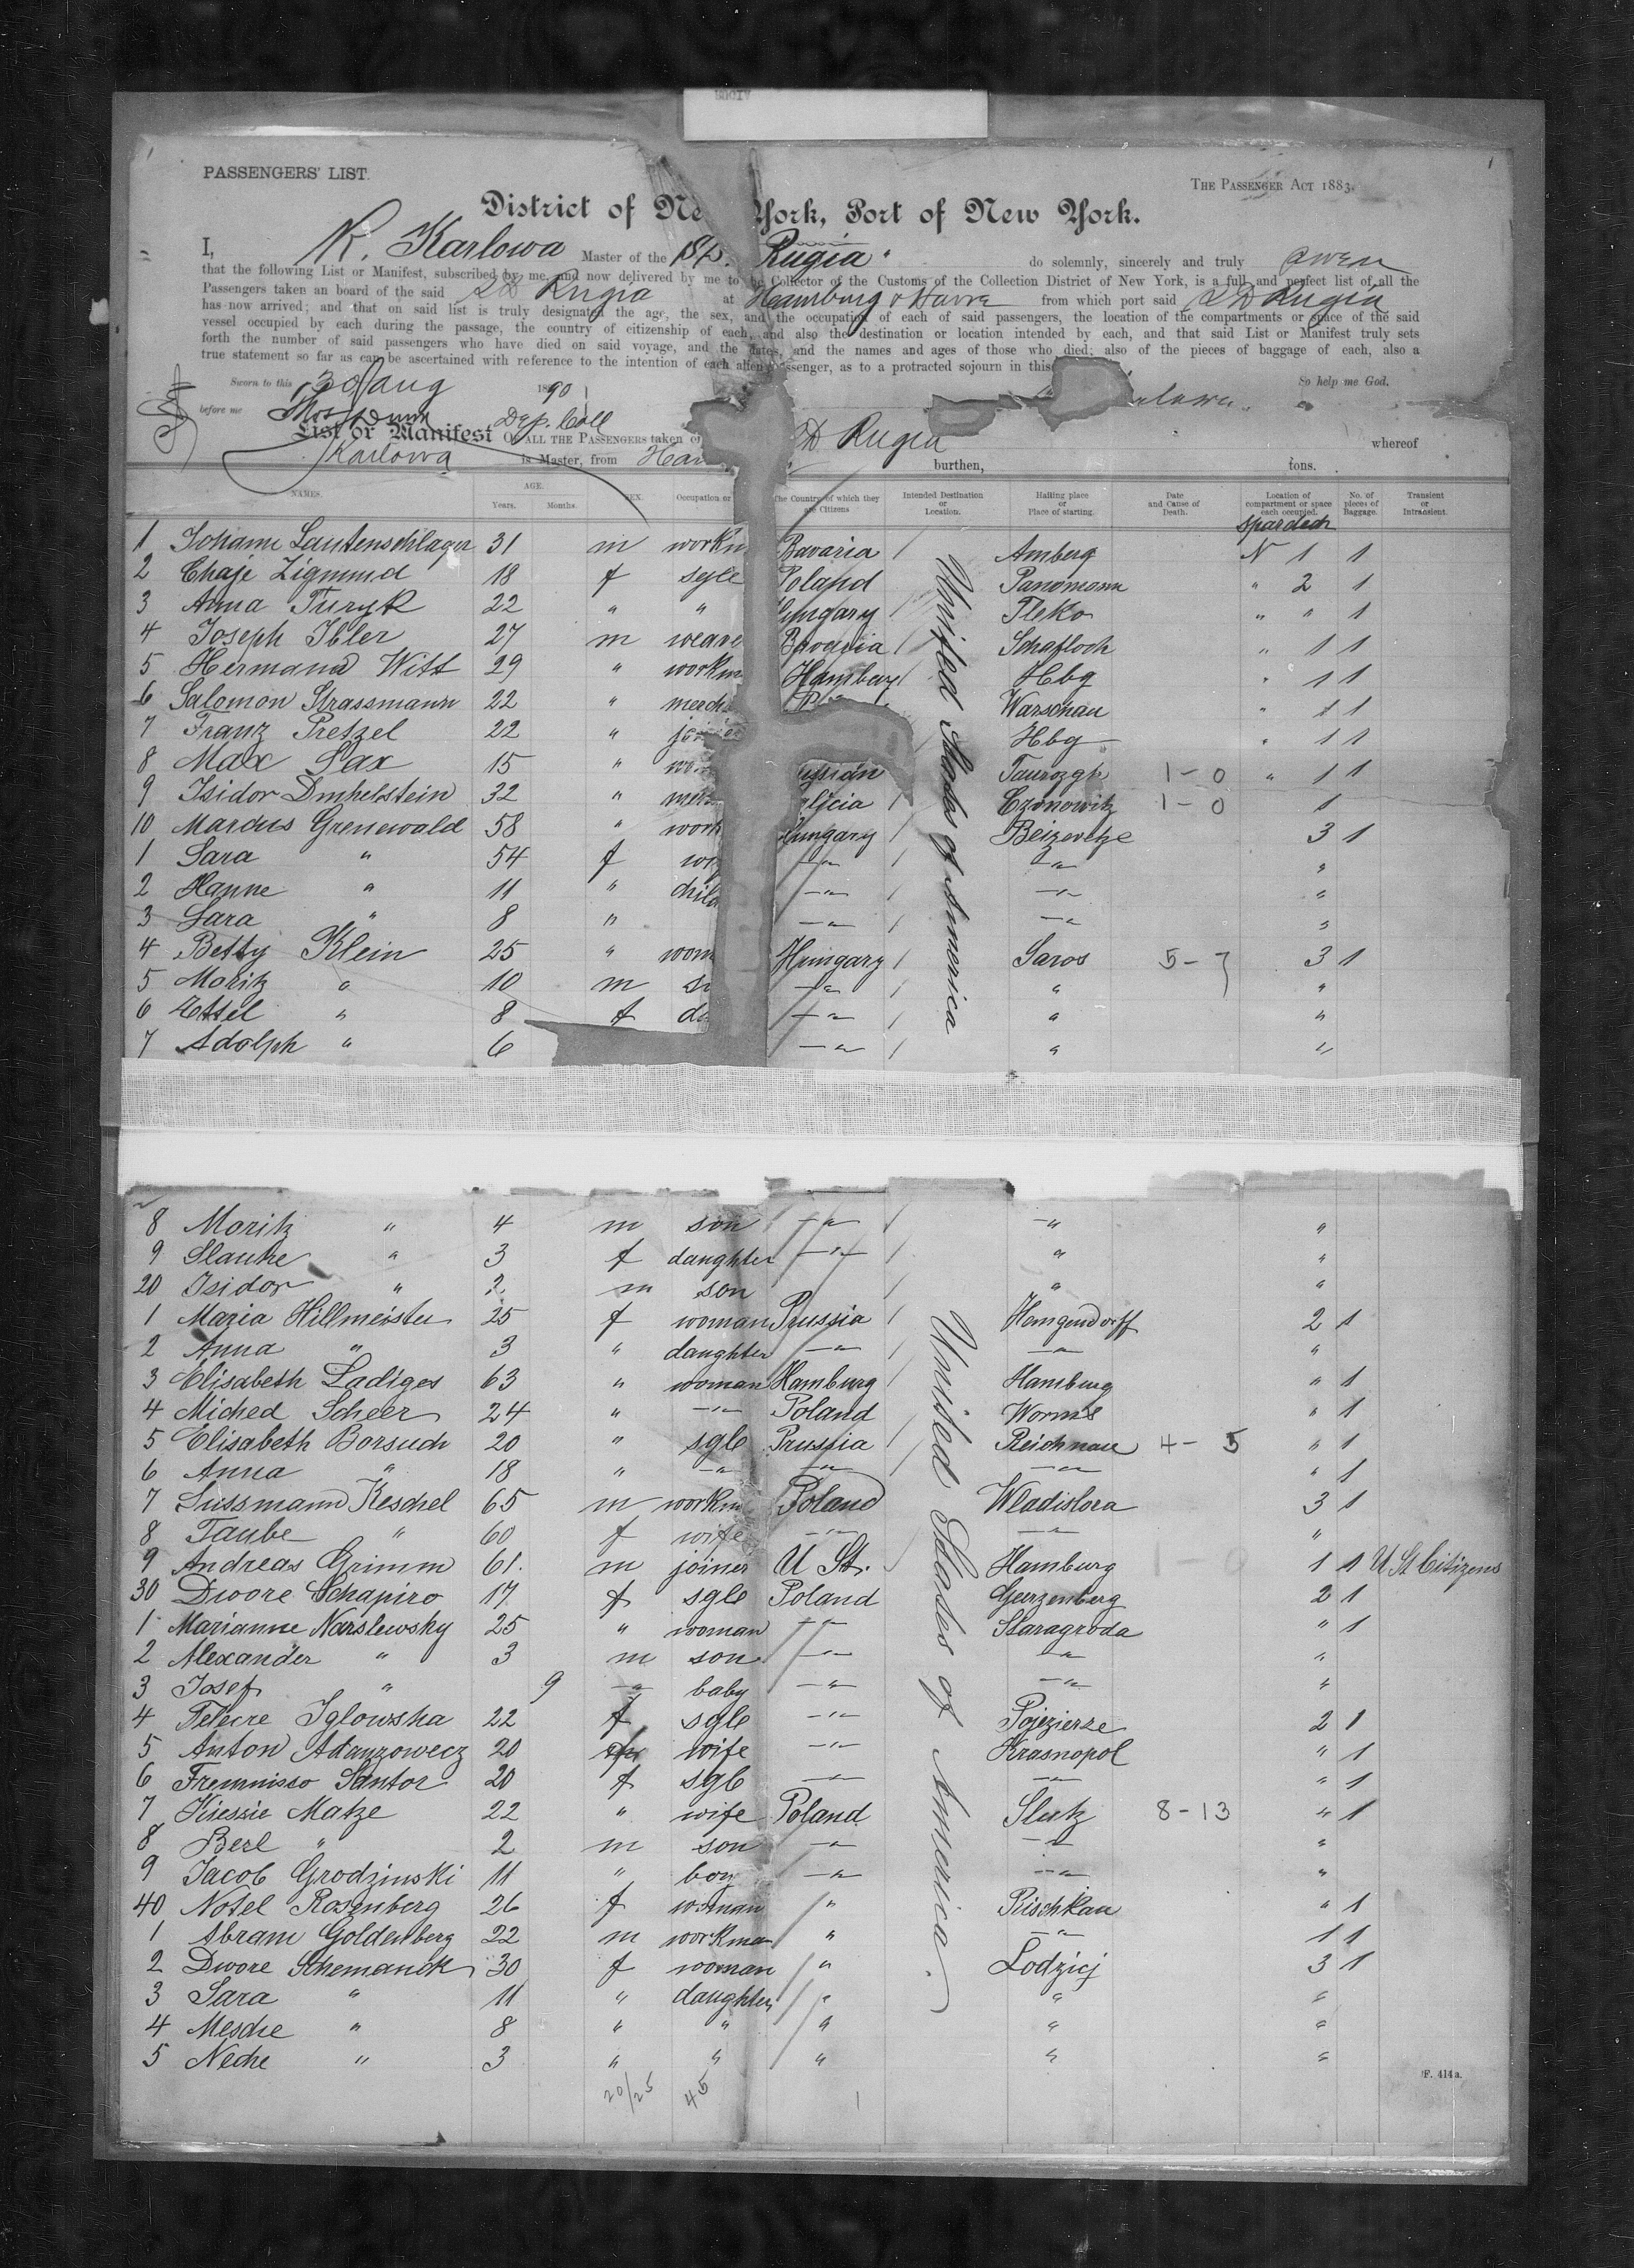 PASSENGERS' LIST.
THE PASSENGER ACT 1883.
District of Ne York, Port of New York.
I, R. Karlowa Master of the SD. Rugia do solemnly, sincerely and truly swear
that the following List or Manifest, subscribed by me, and now delivered by me to the Collector of the Customs of the Collection District of New York, is a full and perfect list of all the
Passengers taken an board of the said SD Rugia at Hamburg & Havre from which port said SD Rugia
has now arrived; and that on said list is truly designated the age, the sex, and the occupation of each of said passengers, the location of the compartments or space of the said
vessel occupied by each during the passage, the country of citizenship of each, and also the destination or location intended by each, and that said List or Manifest truly sets
forth the number of said passengers who have died on said voyage, and the dates, and the names and ages of those who died; also of the pieces of baggage of each, also a
true statement so far as can be ascertained with reference to the intention of each alien passenger, as to a protracted sojourn in this
Sworn to this 30 Aug 1890 So help me God.
before me Thos Dunn Dep. Coll
List or Manifest OF ALL THE PASSENGERS taken SD Rugia whereof
Karlowa is Master, from Ham burthen, tons.
NAMES. AGE. Years. Months. SEX. Occupation or The Country of which they are Citizens Intended Destination or Location. Halting place or Place of starting. Date and Cause of Death. Location of compartment or space each occupied. No. of pieces of Baggage. Transient or Intransient.
spardeck
1 Johann Lautenschlager 31 m workm Bavaria / Amberg N 1 1
2 Chaje Zigmund 18 f sgle Poland " 2 1
3 Anna Turyk 22 " " ungary / Pleko " " 1
4 Joseph Ibler 27 m weave Bavaria / Schafloch " 1 1
5 Hermann Witt 29 " workm Hamburg / Hbg " 1 1
6 Salomon Strassmann 22 " merch Warschau " 1 1
7 Franz Pretzel 22 " joiner Hbg " 1 1
8 Max Sax 15 " wor Taurozgh 1-0 " 1 1
9 Isidor 32 " licia / Czonowitz 1-0 1
10 Marcus Grenewald 58 " work ungary / Beizevetze 3 1
1 Sara " 54 f wif -"- / -"- "
2 Hanne " 11 " child -"- / -"- "
3 Sara " 8 " -"- / -"- "
4 Betty Klein 25 " wom Hungary / Saros 5-7 3 1
5 Moritz " 10 m s -"- / " "
6 Ettel " 8 f da -"- / " "
7 Adolph " 6 -"- / " "
United States of America
8 Moritz " 4 m son -"- / -"- "
9 Slauke " 3 f daughter -"- / " "
20 Isidor " 2 m son / " "
1 Maria Hillmeister 25 f woman Prussia / Hemgendorff 2 1
2 Anna " 3 " daughter -"- / -"- "
3 Elisabeth Ladiges 63 " woman Hamburg / Hamburg " 1
4 Miched Scheer 24 " -"- Poland / Worms " 1
5 Elisabeth Borsuch 20 " sgle Prussia / Reichnau 4-5 " 1
6 Anna " 18 " -"- -"- -"- " 1
7 Sussmann Keschel 65 m workm Poland Wladislora 3 1
8 Taube " 60 f wife -"- -"- "
9 Andreas Grimm 61. m joiner U St. Hamburg 1 0 1 1 U St Citizens
30 Dwore Schapiro 17 f sgle Poland Geurzenberg 2 1
1 Marianne Narslewsky 25 " woman -"- Staragroda " 1
2 Alexander " 3 m son -"- -"- "
3 Josef " 9 -"- baby -"- -"- "
4 Felecre Iglowska 22 f sgle -"- Pojezierze 2 1
5 Anton Adamzowecz 20 wife -"- Krasnopol " 1
6 Fremnisso Santor 20 f sgle -"- -"- " 1
7 Kiessie Matze 22 " wife Poland Slutz 8-13 " 1
8 Berl " 2 m son -"- -"- "
9 Jacob Grodzinski 11 " boy -"- -"- "
40 Notel Rosenberg 26 f woman " Pischkau " 1
1 Abram Goldenberg 22 m workman " -"- 1 1
2 Dwore Schemanck 30 f woman " Lodzicj 3 1
3 Sara " 11 " daughter " " "
4 Mesche " 8 " " " " "
5 Neche " 3 " " " " "
United States of America.
20/25 45
F. 414a.